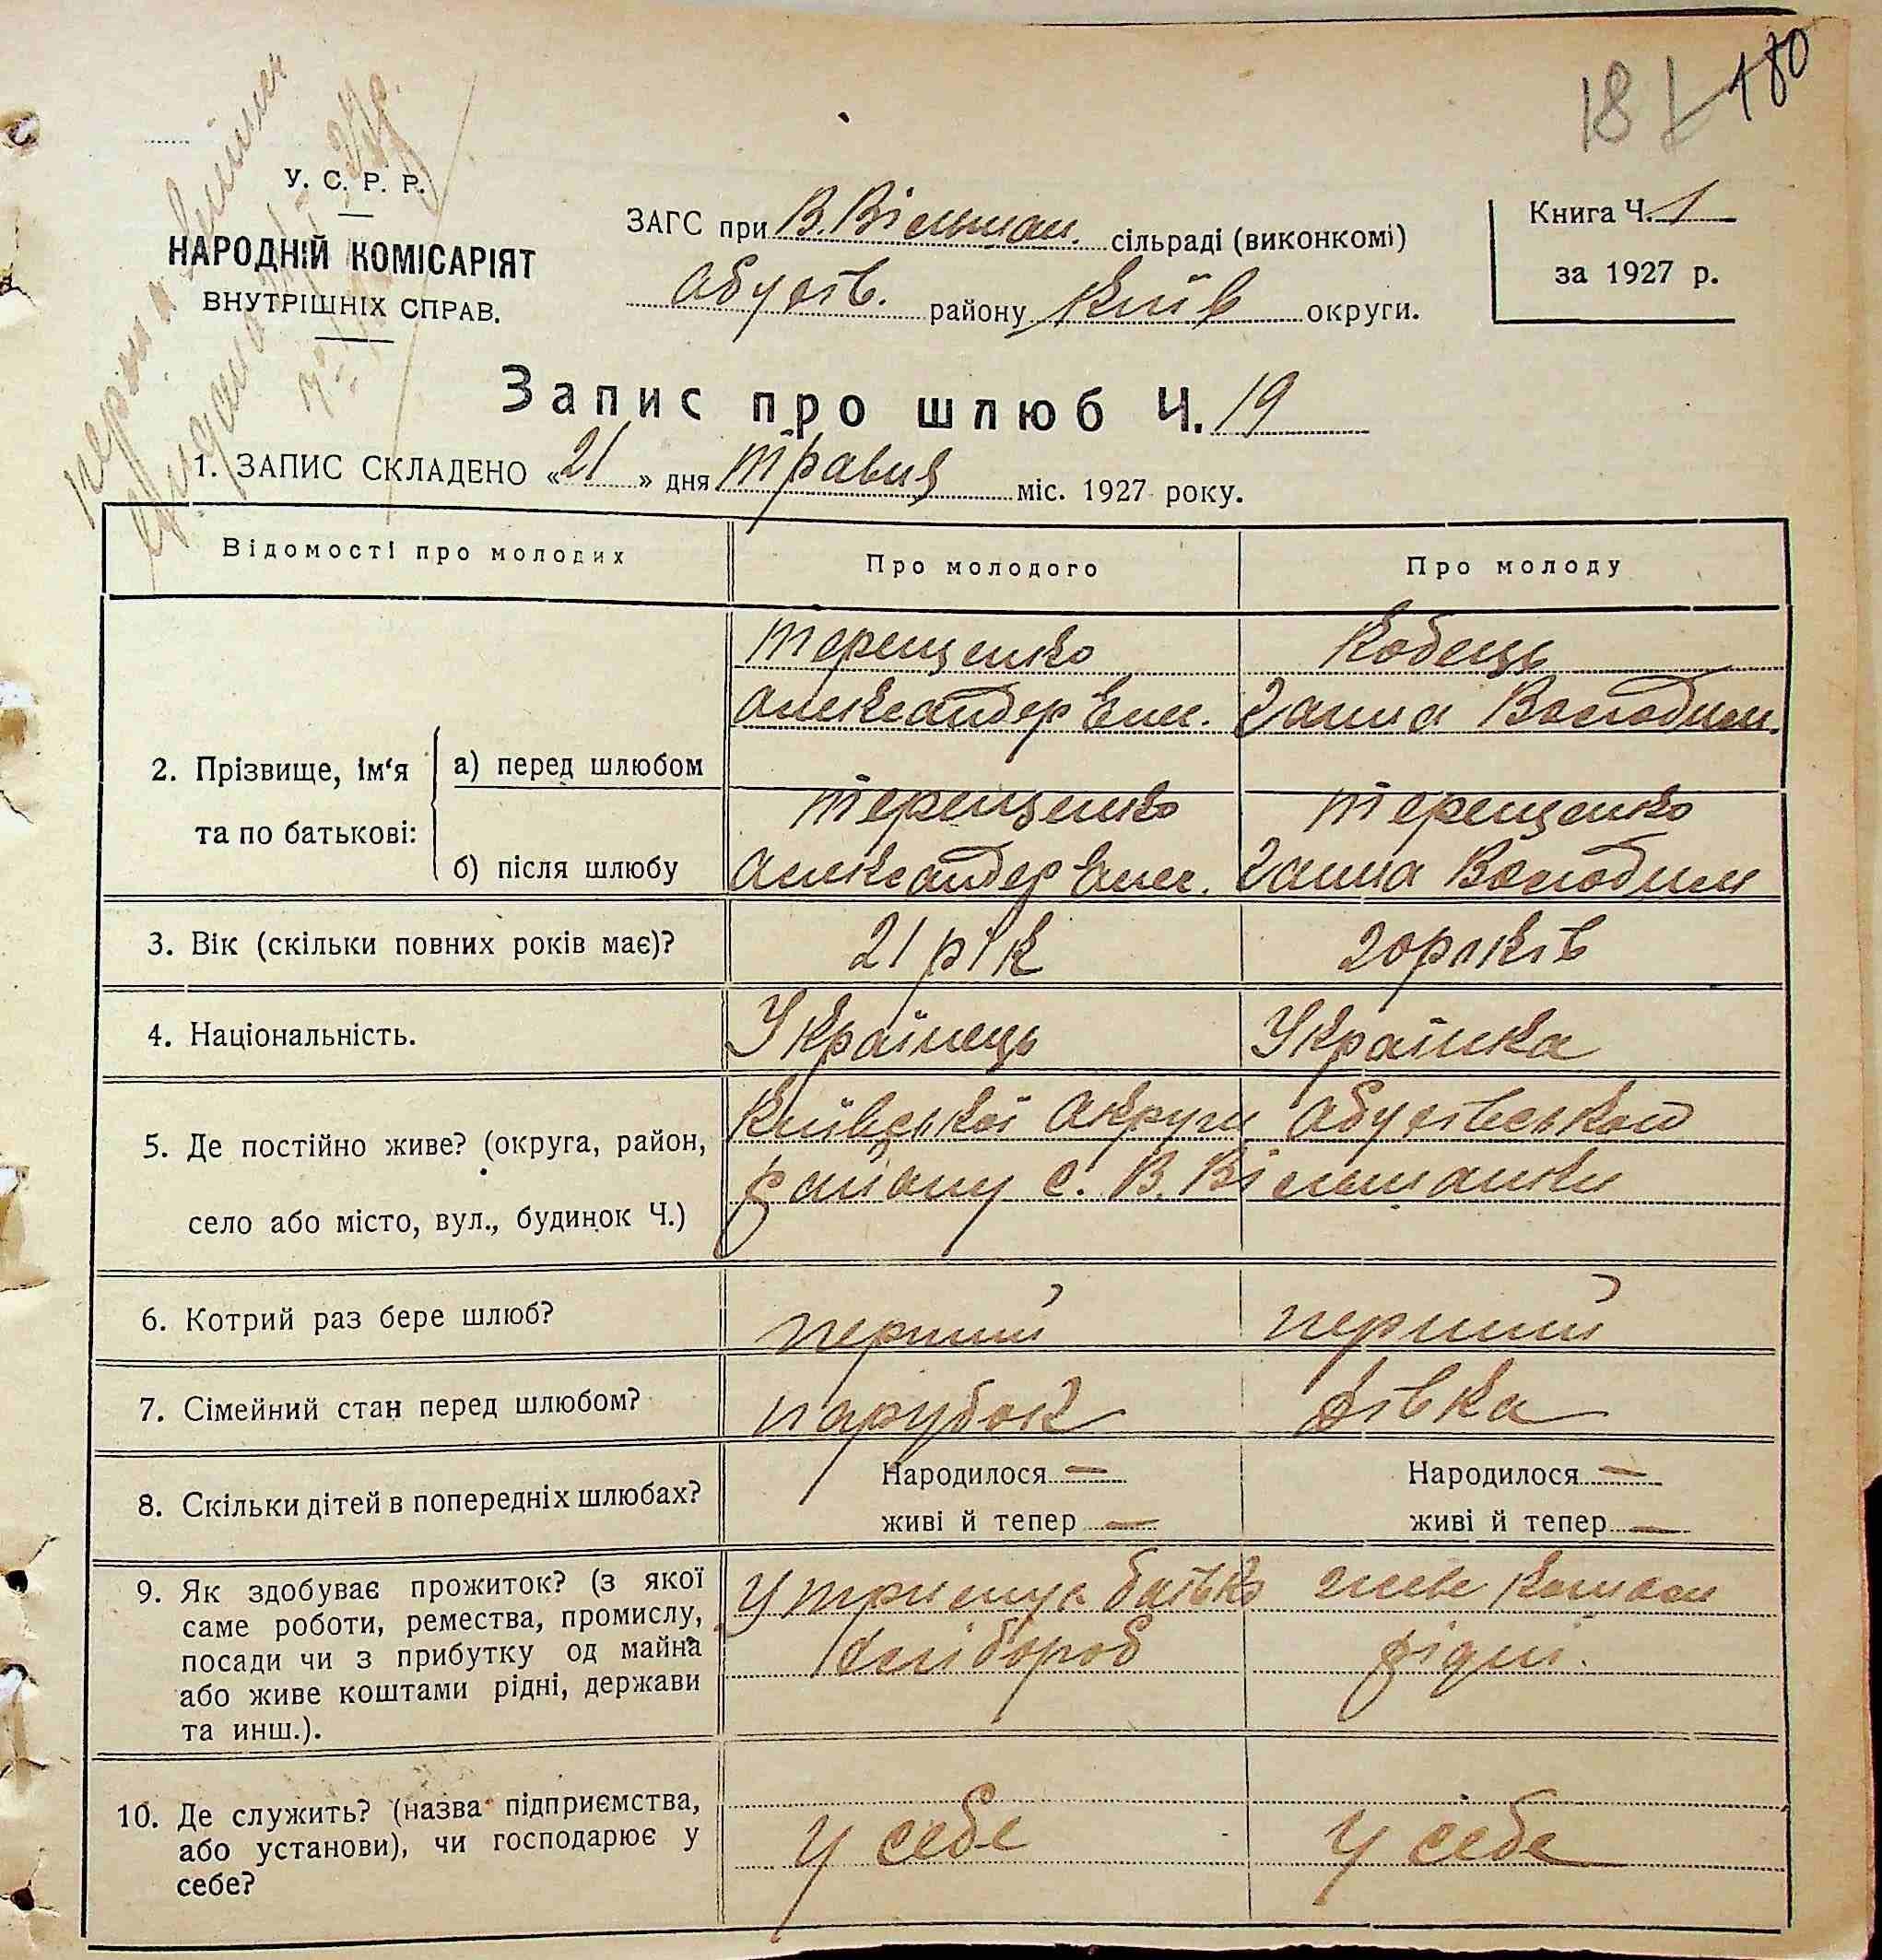 18 180
У. С. Р. Р.
НАРОДНІЙ КОМІСАРІЯТ
ВНУТРІШНІХ СПРАВ.
ЗАГС при В. Вільшан. сільраді (виконкомі)
Обухів. району Київ округи.
Книга Ч. 1
за 1927 р.
Запис про шлюб Ч. 19
1. ЗАПИС СКЛАДЕНО «21» дня травня міс. 1927 року.
Відомості про молодих Про молодого Про молоду
Терещенко Кобець
Александер Ганна Володим.
2. Прізвище, ім‘я а) перед шлюбом
Терещенко Терещенко
та по батькові:
б) після шлюбу Александер Ганна Володим
3. Вік (скільки повних років має)? 21 рік 20 років
4. Національність. Українець Українка
5. Де постійно живе? (округа, район, Київської Округи Обухівського
району с. В. Вільшанки
село або місто, вул., будинок Ч.)
6. Котрий раз бере шлюб? перший перший
7. Сімейний стан перед шлюбом? парубок дівка
8. Скільки дітей в попередніх шлюбах? Народилося — Народилося —
живі й тепер — живі й тепер —
9. Як здобуває прожиток? (з якої
саме роботи, ремества, промислу,
посади чи з прибутку од майна
або живе коштами рідні, держави
та инш.).
утримує батько живе коштом
хлібороб рідні.
10. Де служить? (назва підприємства,
або установи), чи господарює у
себе?
у себе у себе